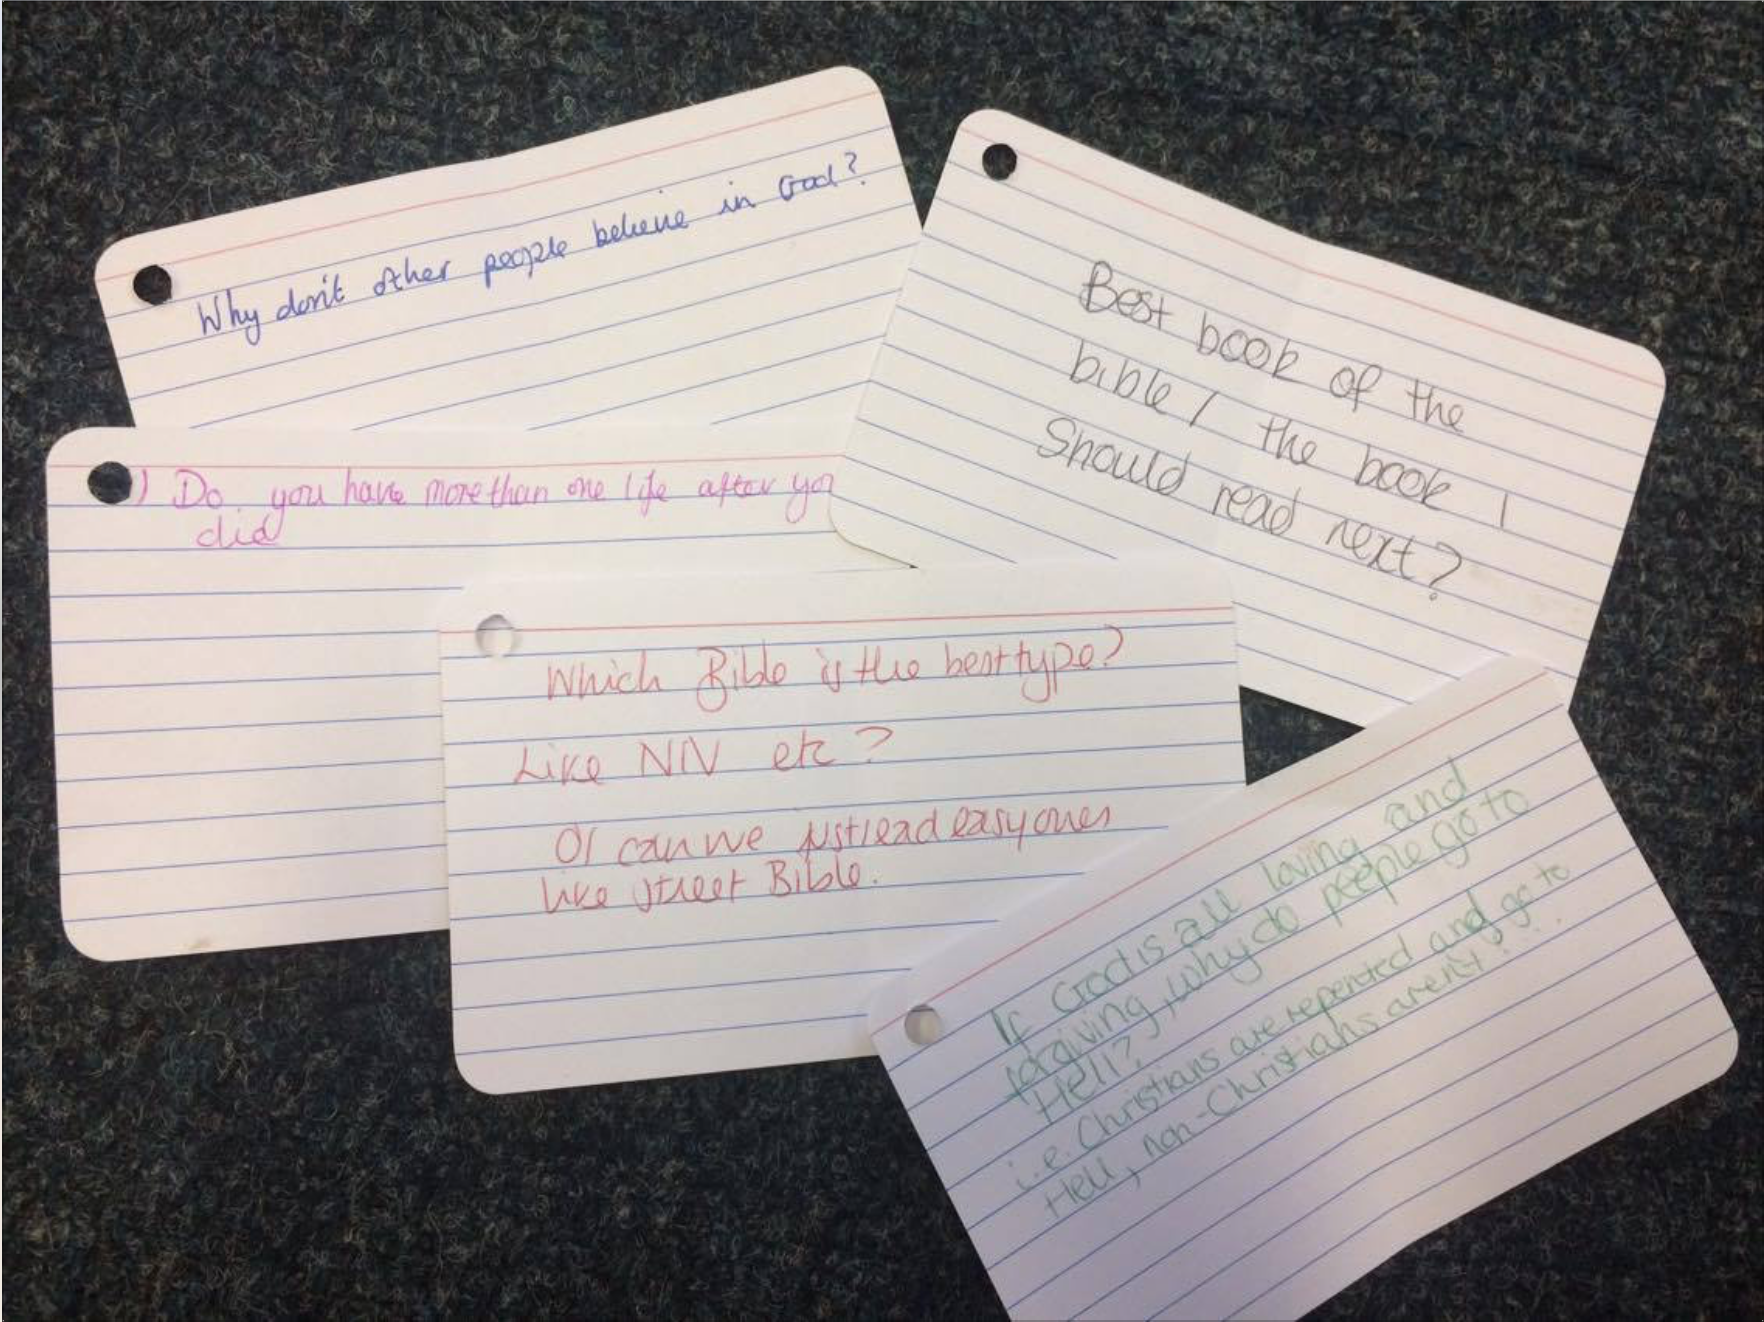 Why don't other people believe in God?
Best book of the
bible / the book I
Should read next?
) Do you have more than one life after you
did
Which Bible is the best type?
Like NIV etc?
Or can we just read easy ones
like street Bible.
If God is all loving and
forgiving, why do people go to
Hell?
i.e. Christians are repented and go to
Hell, non-Christians aren't?...